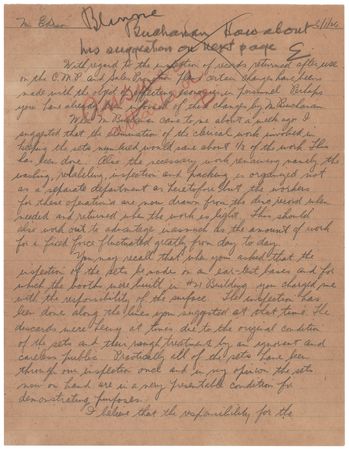 Mr Edison
Blamque
Buchanan How about
his suggestion on next page
E
6/1/26
With regard to the inspection of records returned after use
on the C.M.P. and Sales Promotion Plan certain changes have been
made with the object of effecting economy in personnel. Perhaps
you have already been informed of these changes by Mr Buchanan.
When Mr Buchanan came to me about a week ago I
suggested that the elimination of the clerical work involved in
keeping the sets numbered would save about 1/3 of the work. This
has been done. Also the necessary work remaining namely the
washing, relabeling, inspection and packing is organized not
as a separate department as heretofore but the workers
for these operations are now drawn from the disc record when
needed and returned when the work is light. This should
also work out to advantage inasmuch as the amount of work
for a fixed force fluctuated greatly from day to day.
You may recall that when you asked that the
inspection of the sets be made on an ear-test basis and for
which the booths were built in #24 Building you charged me
with the responsibility of the surface. The inspection has
been done along the lines you suggested at that time. The
discards were heavy at times due to the original condition
of the sets and their rough treatment by an ignorant and
careless public. Practically all of the sets have been
through our inspection once and in my opinion the sets
now on hand are in a very presentable condition for
demonstrating purposes.
I believe that the responsibility for the